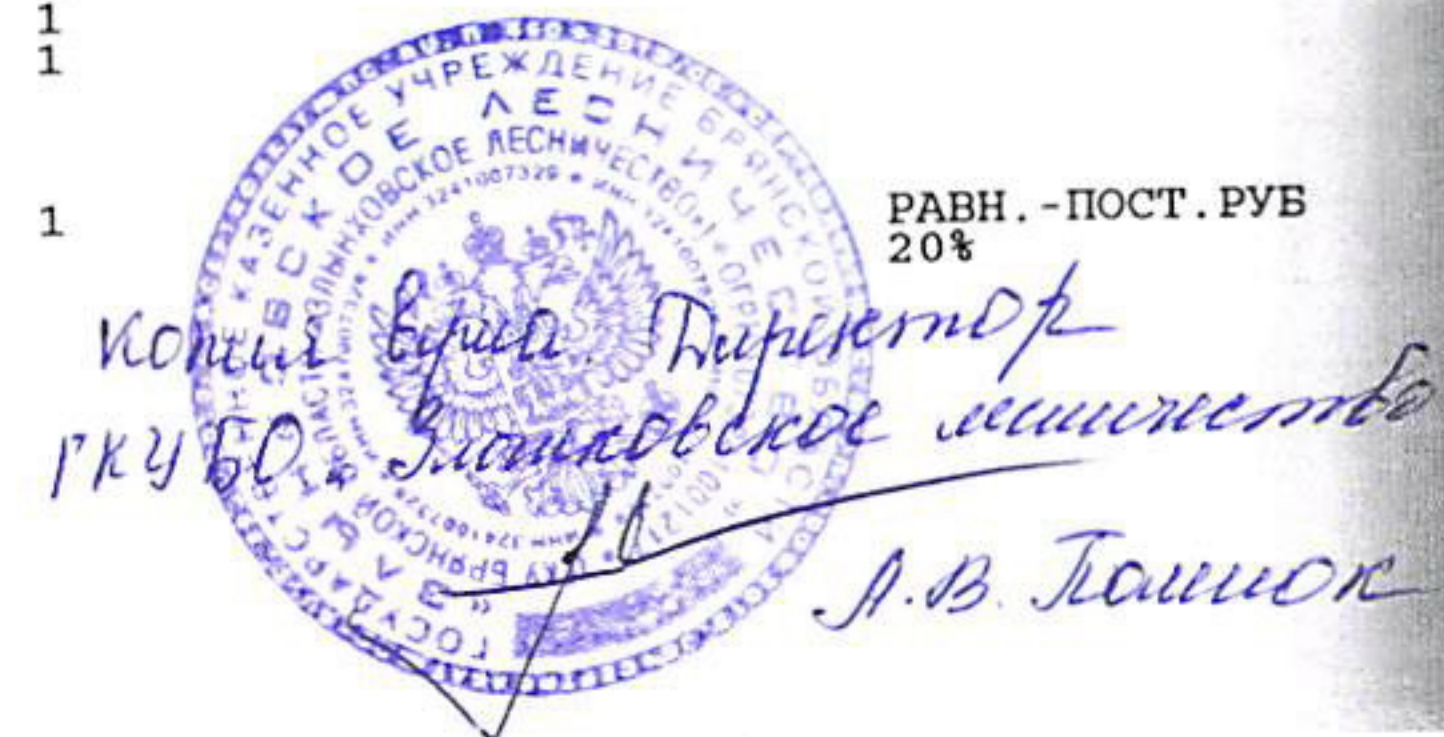 1
1
1
РАВН.-ПОСТ.РУБ
20%
ГОСУДАРСТВЕННОЕ КАЗЕННОЕ УЧРЕЖДЕНИЕ БРЯНСКОЙ ОБЛАСТИ
"ЗЛЫНКОВСКОЕ ЛЕСНИЧЕСТВО"
ИНН 3241007329
Копия верна. Директор
ГКУ БО "Злынковское лесничество
А.В.